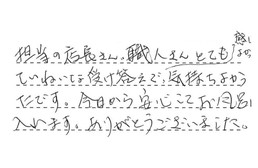 担当の店長さん、職人さんとても感じよく
ていねいな受け答えで、気持ちよかっ
たです。今日から安心してお風呂に
入ります。ありがとうございました。